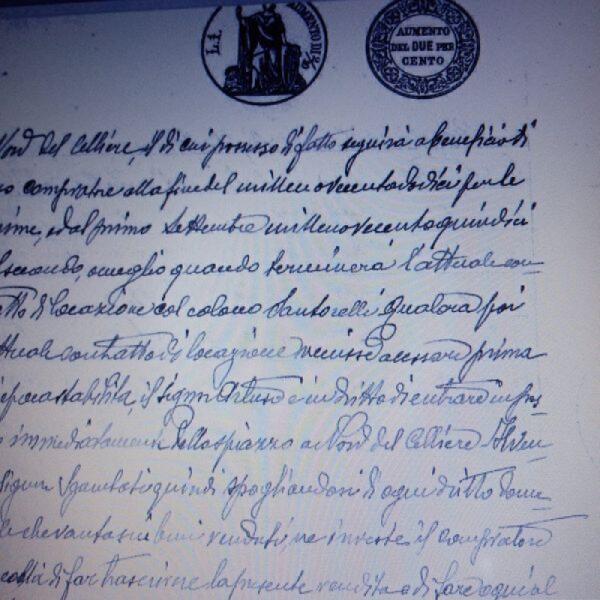 L.1.
AUMENTO
AUMENTO
DEL DUE PER
CENTO
Nord del Celliere, il di cui possesso di fatto seguirà a beneficio di
compratore alla fine del millenovecentododici per le
prime, e dal primo Settembre millenovecentoquindici
secondo, o meglio quando terminerà l'attuale con-
di locazione col colono Santorelli. Qualora poi
contratto di locazione venisse a cessare prima
epoca stabilita, il signor Artuso è in dritto di entrare in pos-
immediatamente dello spiazzo a Nord del Celliere. Il ven-
signor quindi spogliandosi di ogni dritto
che vanta sui beni venduti, ne investe il compratore
di far trascrivere la presente vendita e di fare ogni al